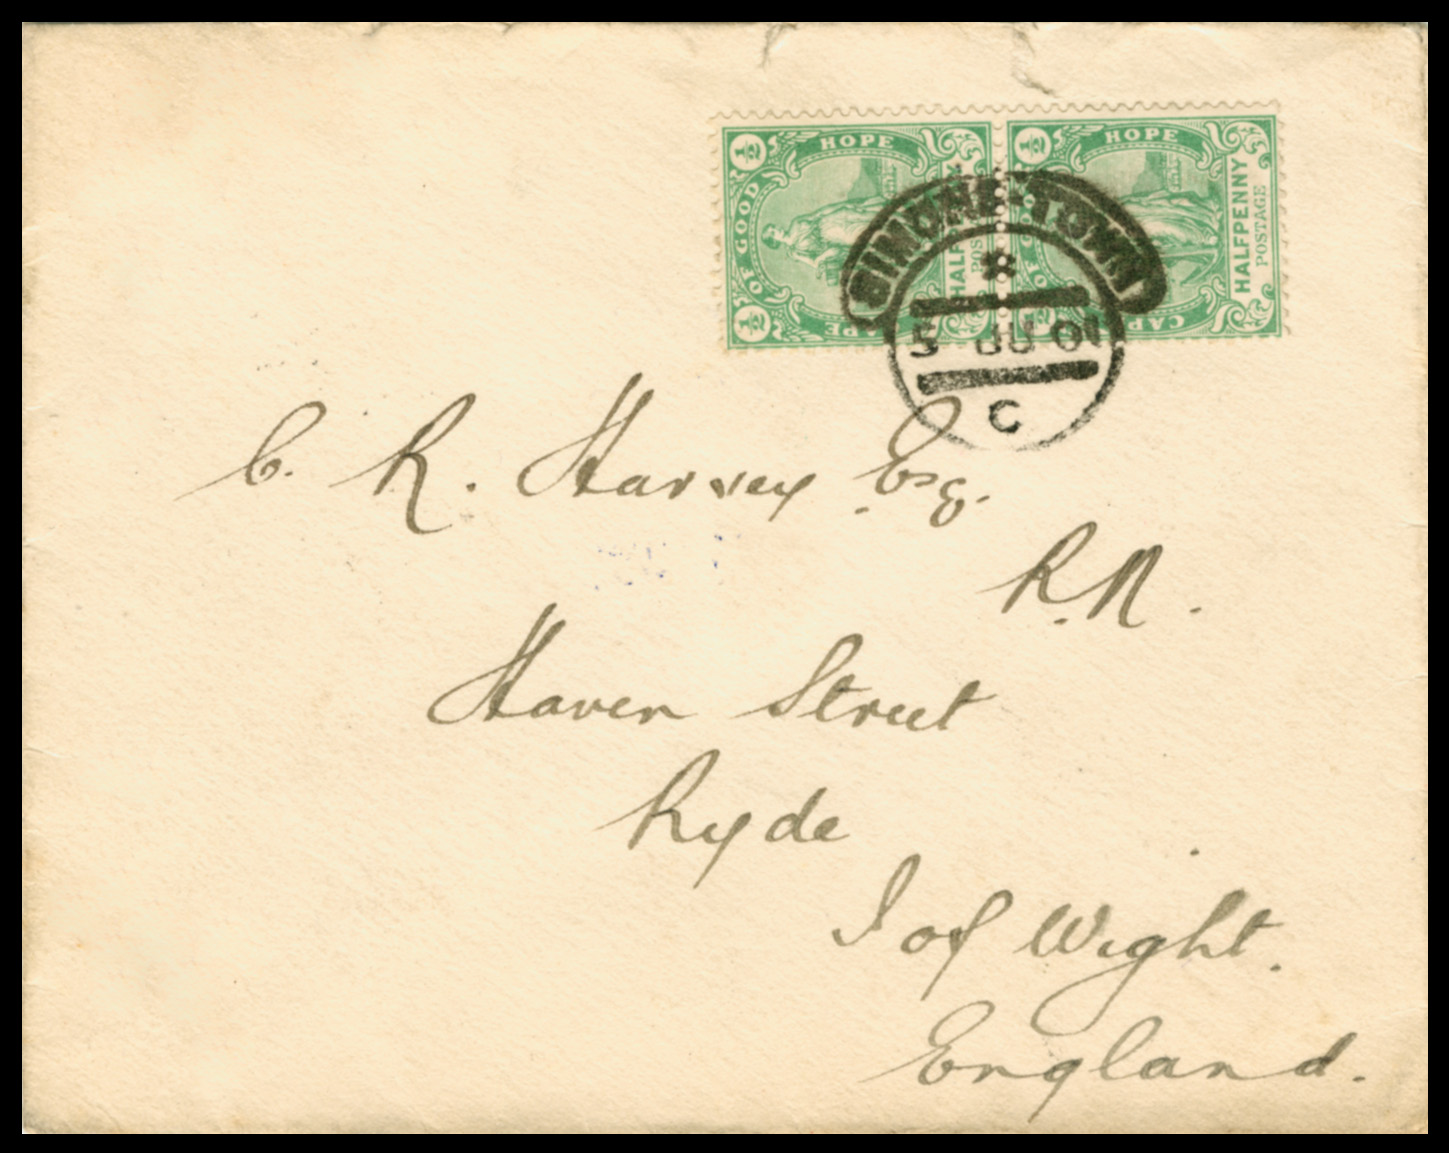 HOPE
OF GOOD
HALFPENNY
POSTAGE
½
½
HOPE
HALFPENNY
POSTAGE
½
SIMONS-TOWN
5 JU 01
C
C. R. Harvey Esq.
R.N.
Haven Street
Ryde
I of Wight.
England.